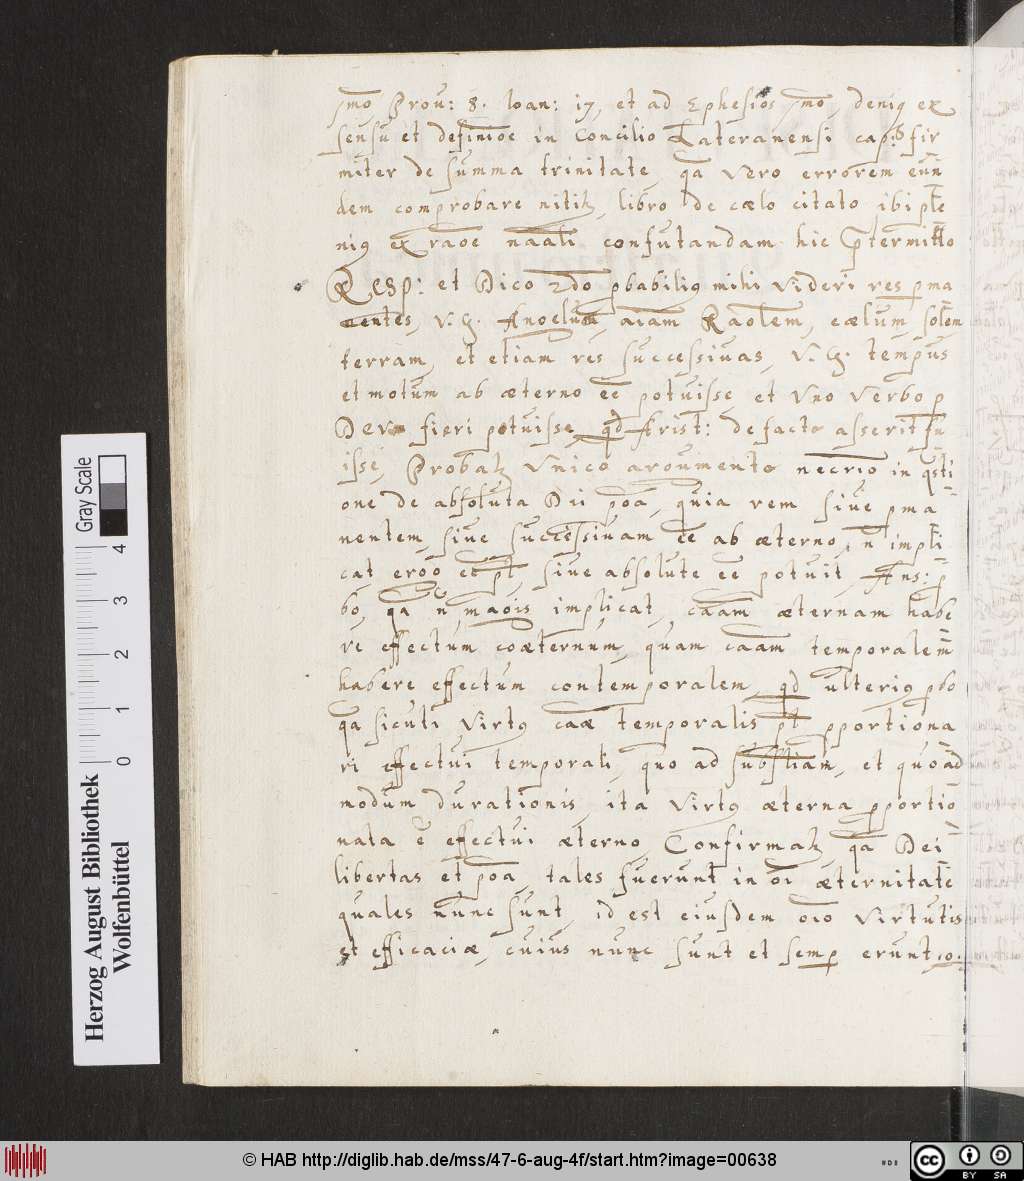 jmo Prou: 8. Ioan: 17, et ad Ephesios jmo, deniq ex
sensu et definioe in Concilio Lateranensi cap: fir
miter de summa trinitate, qa Vero errorem eun
dem comprobare nitit, libro de cælo citato ibi ple
niq ex raoe naali confutandam hic prtermitto
Resp: et Dico 2do pbabiliq mihi Videri res pma
nentes, v. G. Angelum, aiam Raolem, cælum, solem
terram, et etiam res successiuas, V. G. tempus
et motum ab æterno ee potuisse et Vno Verbo p
Deum fieri potuisse, qd Arist: de facto asserit fu
isse, Probat Vnico argumento necrio in qsti
one de absoluta Dei poa, quia rem siue pma
nentem, siue successiuam ee ab æterno, n impli
cat ergo siue absolute ee potuit, Ans: p
bo, qa n magis implicat, caam æternam habe
re effectum coæternum, quam caam temporalem
habere effectum contemporalem, qd ulteriq pbo
qa sicuti Virtq caæ temporalis pt pportiona
ri effectui temporali, quo ad substiam, et quoad
modum durationis, ita Virtq æterna pportio
nata e effectui æterno, Confirmat, qa Dei
libertas et poa, tales fuerunt in oi æternitate
quales nunc sunt, id est eiusdem oio Virtutis
et efficaciæ, cuius nunc sunt et semp erunt
Gray Scale
0 1 2 3 4
Herzog August Bibliothek
Wolfenbüttel
© HAB http://diglib.hab.de/mss/47-6-aug-4f/start.htm?image=00638
cc
BY SA